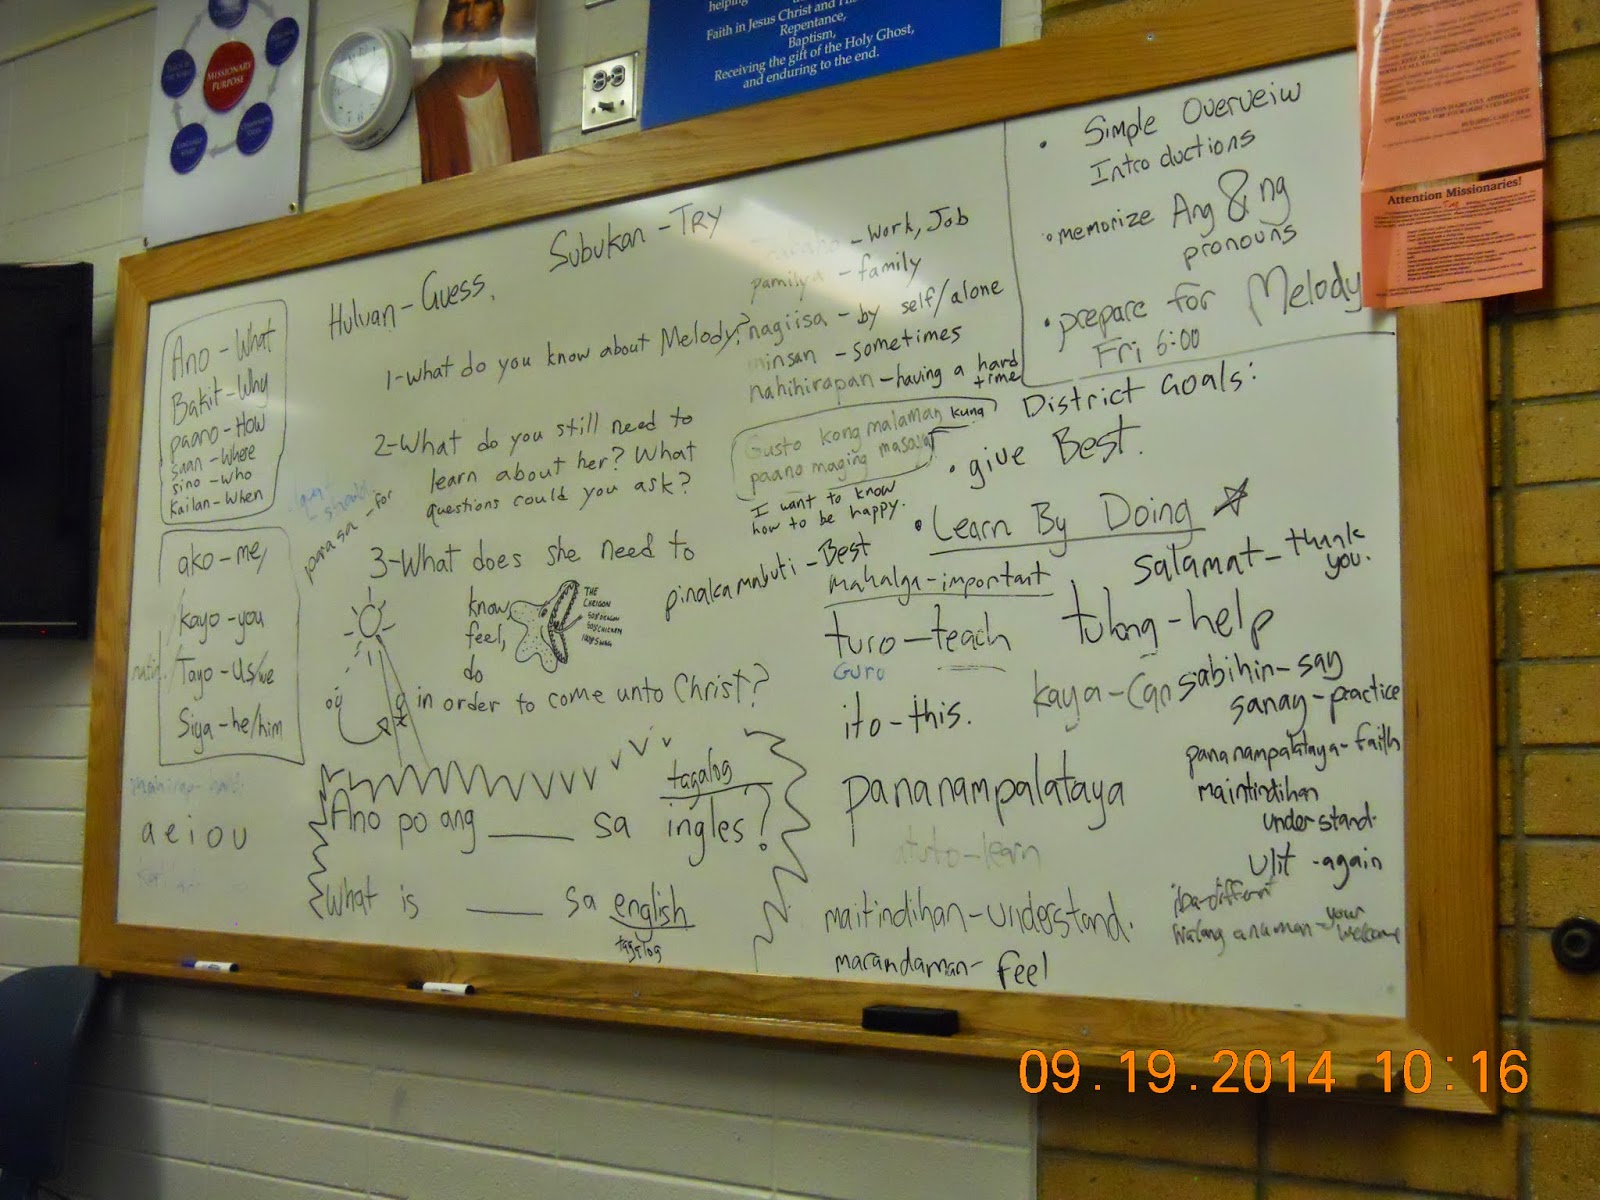 MISSIONARY
PURPOSE
helping
Faith in Jesus Christ and His
Repentance,
Baptism,
Receiving the gift of the Holy Ghost,
and enduring to the end.
Attention Missionaries!
Ano - What
Bakit - Why
paano - How
saan - Where
sino - who
kailan - When
ako - me,
kayo - you
Tayo - us/we
Siya - he/him
a e i o u
Hulvan - Guess,
Subukan - Try
1-What do you know about Melody?
2-What do you still need to
learn about her? What
questions could you ask?
para sa - for
3-What does she need to
know,
feel,
do
THE
in order to come unto Christ?
tagalog
Ano po ang ____ sa ingles?
What is ____ sa english
tagalog
- work, Job
pamilya - family
nagiisa - by self/alone
minsan - sometimes
nahihirapan - having a hard
time
Gusto kong malaman kung
paano maging masaya
I want to know
how to be happy.
pinakamabuti - Best
mahalga - important
turo - teach
Guro
ito - this.
pananampalataya
- learn
maitindihan - understand.
marandaman - feel
• Simple Overveiw
Introductions
• memorize Ang & ng
pronouns
• prepare for Melody
Fri 6:00
District Goals:
• give Best.
• Learn By Doing
Salamat - thank
you.
tulong - help
kaya - Can
sabihin - say
sanay - practice
pananampalataya - faith
maintindihan
understand.
Ulit - again
iba - different
Walang anuman - your
welcome
09.19.2014 10:16